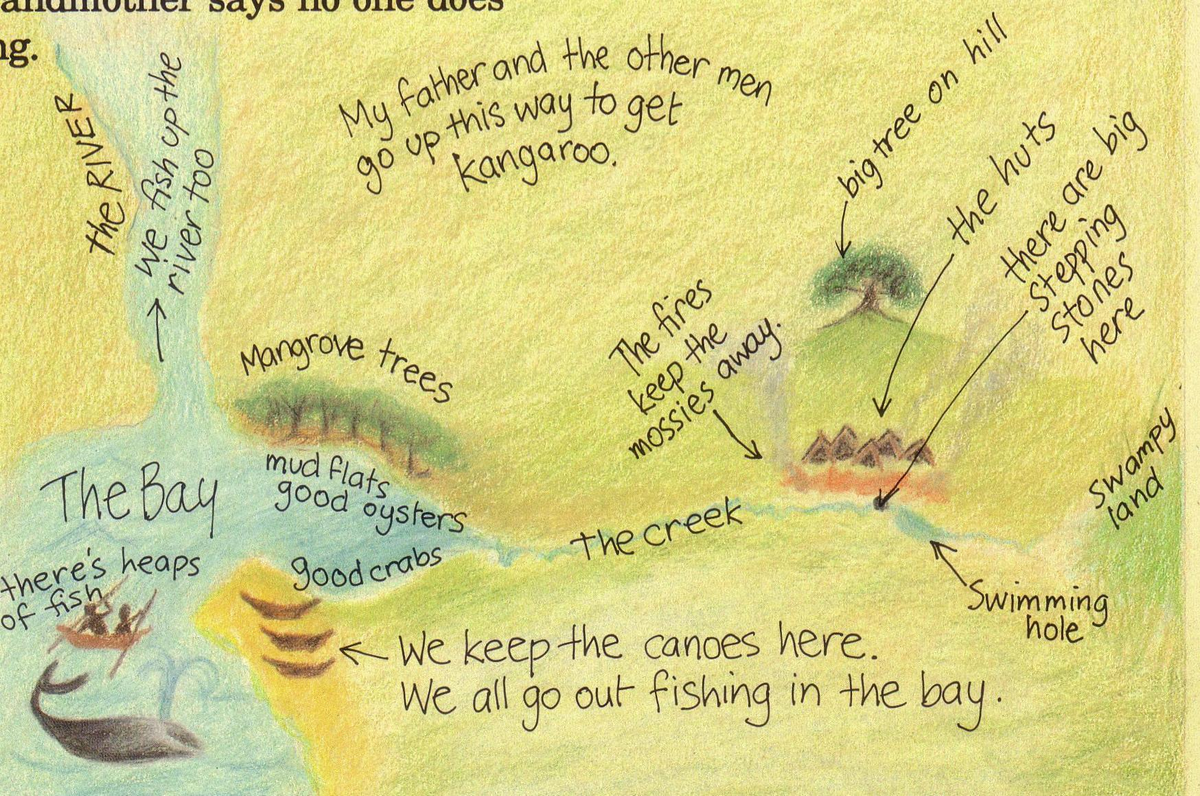 andmother says no one does
ng.
the RIVER
we fish up the
river too
My father and the other men
go up this way to get
kangaroo.
big tree on hill
the huts
there are big
stepping
stones
here
The fires
keep the
mossies away.
Mangrove trees
The Bay
mud flats
good oysters
good crabs
the creek
swampy
land
there's heaps
of fish
Swimming
hole
We keep the canoes here.
We all go out fishing in the bay.